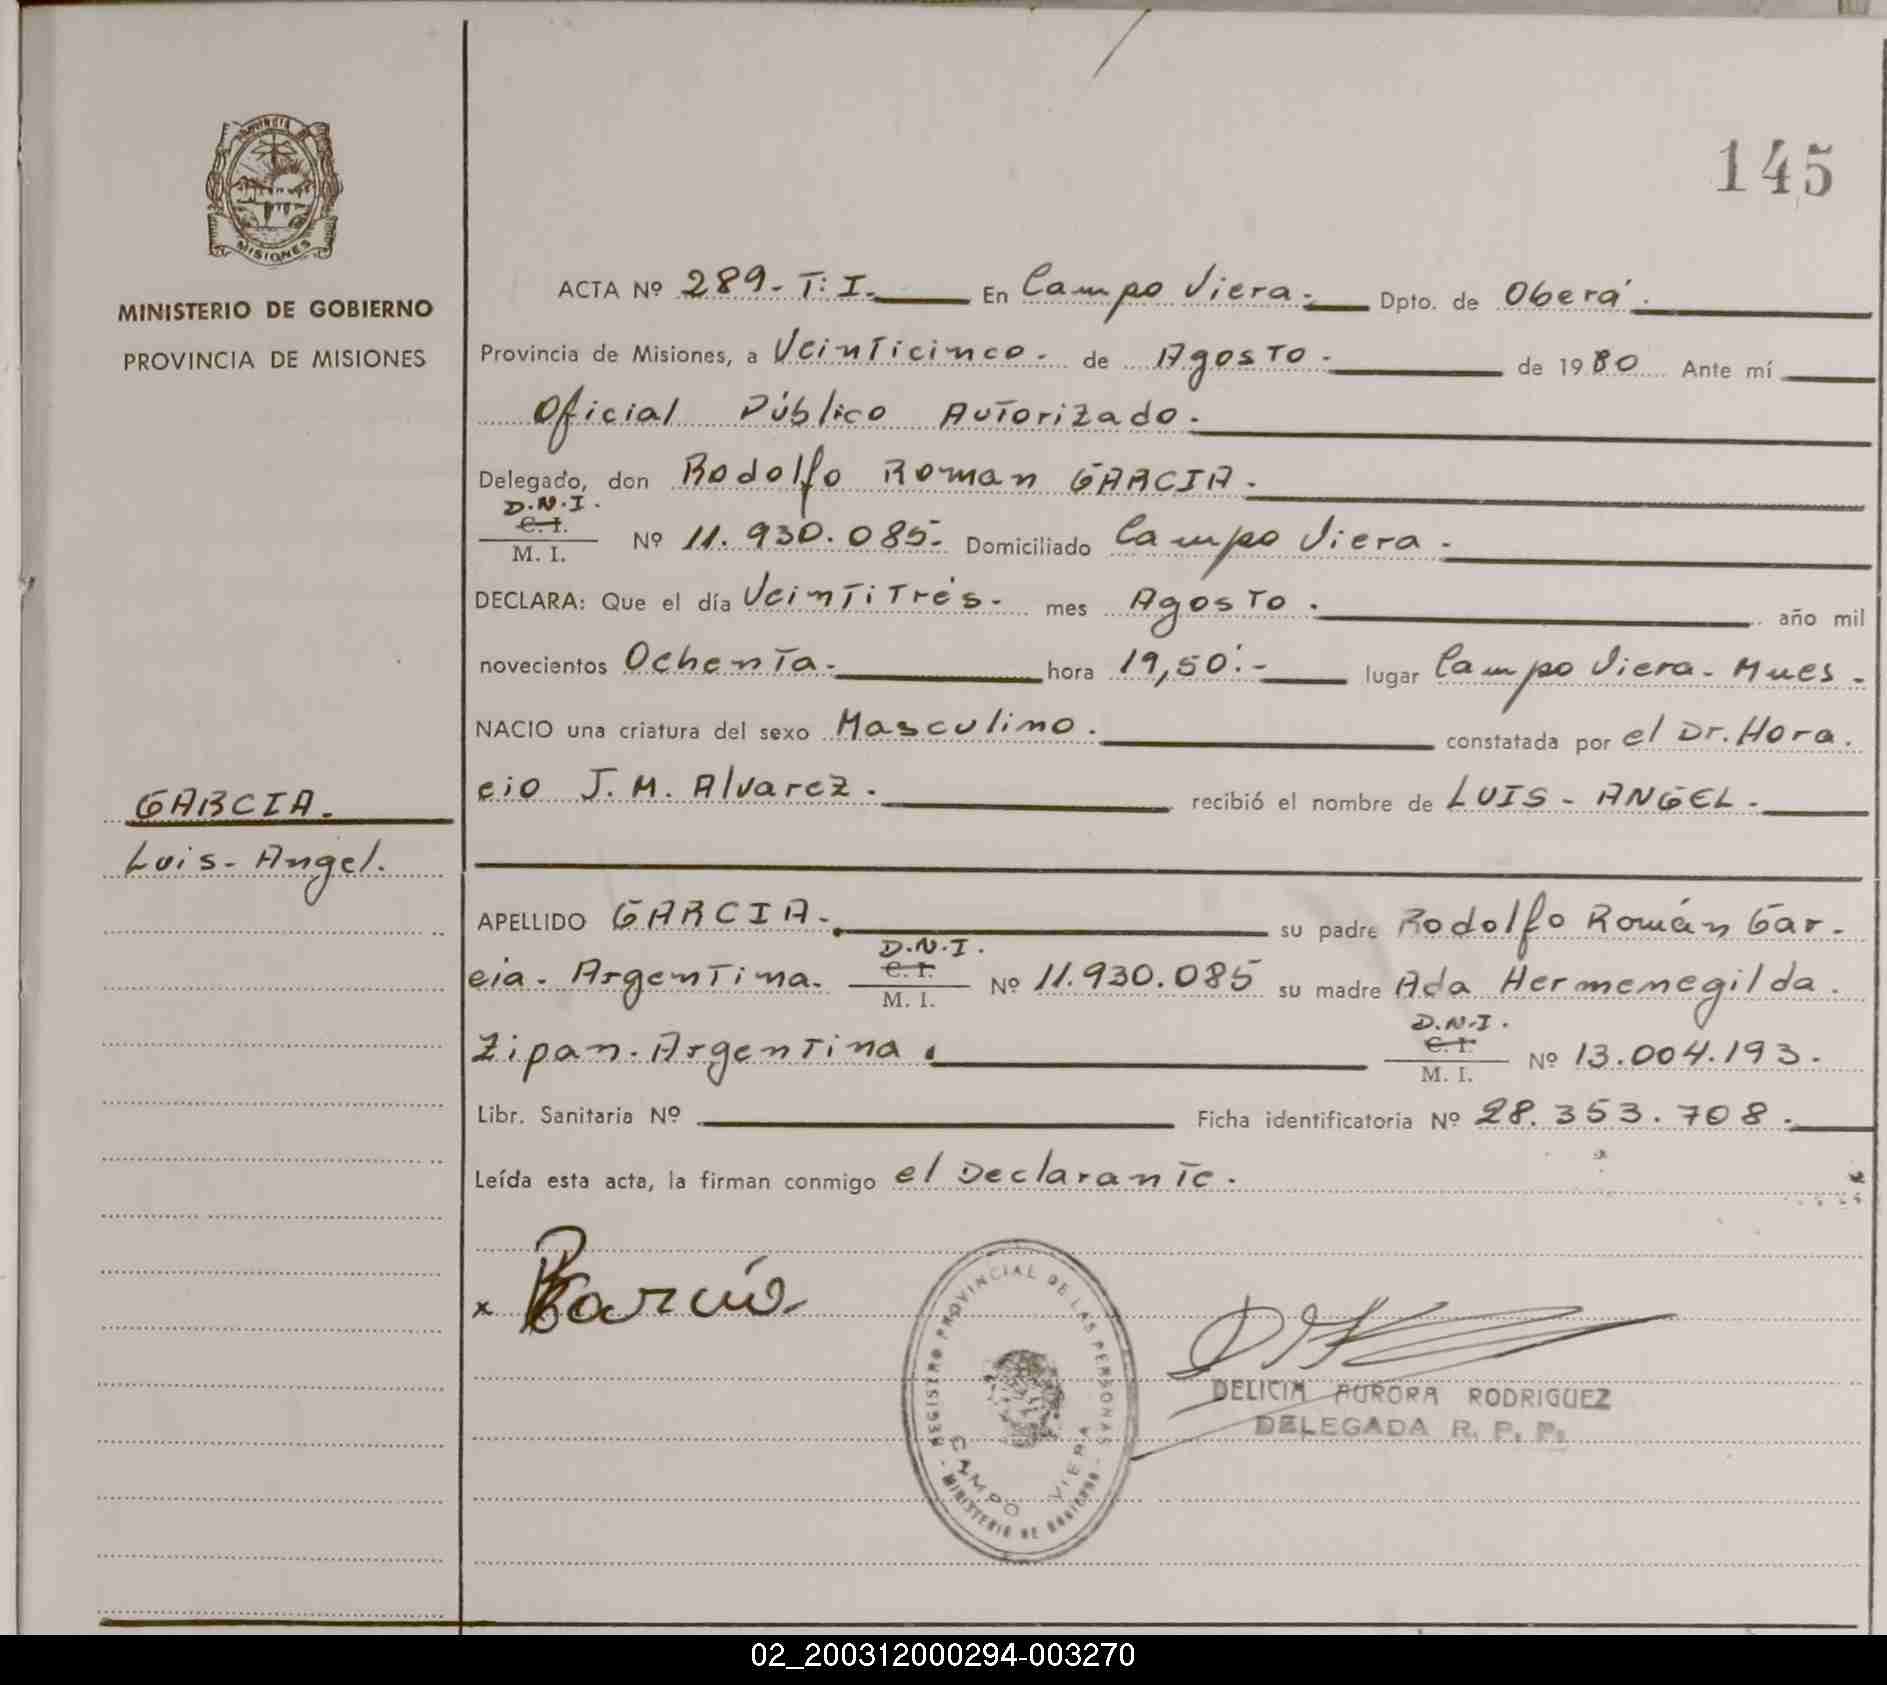 145
PROVINCIA DE
MISIONES
MINISTERIO DE GOBIERNO
PROVINCIA DE MISIONES
GARCIA.
Luis-Angel.
ACTA Nº 289-T:I. En Campo Viera. Dpto. de Oberá.
Provincia de Misiones, a Veinticinco. de Agosto. de 1980 Ante mí
Oficial Público Autorizado.
Delegado, don Rodolfo Roman GARCIA.
D.N.I.
C.I.
M. I. Nº 11.930.085- Domiciliado Campo Viera.
DECLARA: Que el día Veintitrés. mes Agosto. año mil
novecientos Ochenta. hora 19,50'.- lugar Campo Viera. Mues.
NACIO una criatura del sexo Masculino. constatada por el Dr. Hora.
cio J. M. Alvarez. recibió el nombre de LUIS - ANGEL.
APELLIDO GARCIA. su padre Rodolfo Román Gar-
D.N.I.
C.I.
cia. Argentina. M. I. Nº 11.930.085 su madre Ada Hermenegilda.
D.N.I.
C.I.
Zipan. Argentina. M. I. Nº 13.004.193.
Libr. Sanitaria Nº Ficha identificatoria Nº 28.353.708.
Leída esta acta, la firman conmigo el Declarante.
x
REGISTRO PROVINCIAL DE LAS PERSONAS
CAMPO VIERA
- MINISTERIO DE GOBIERNO -
DELICIA AURORA RODRIGUEZ
DELEGADA R. P. P.
02_200312000294-003270